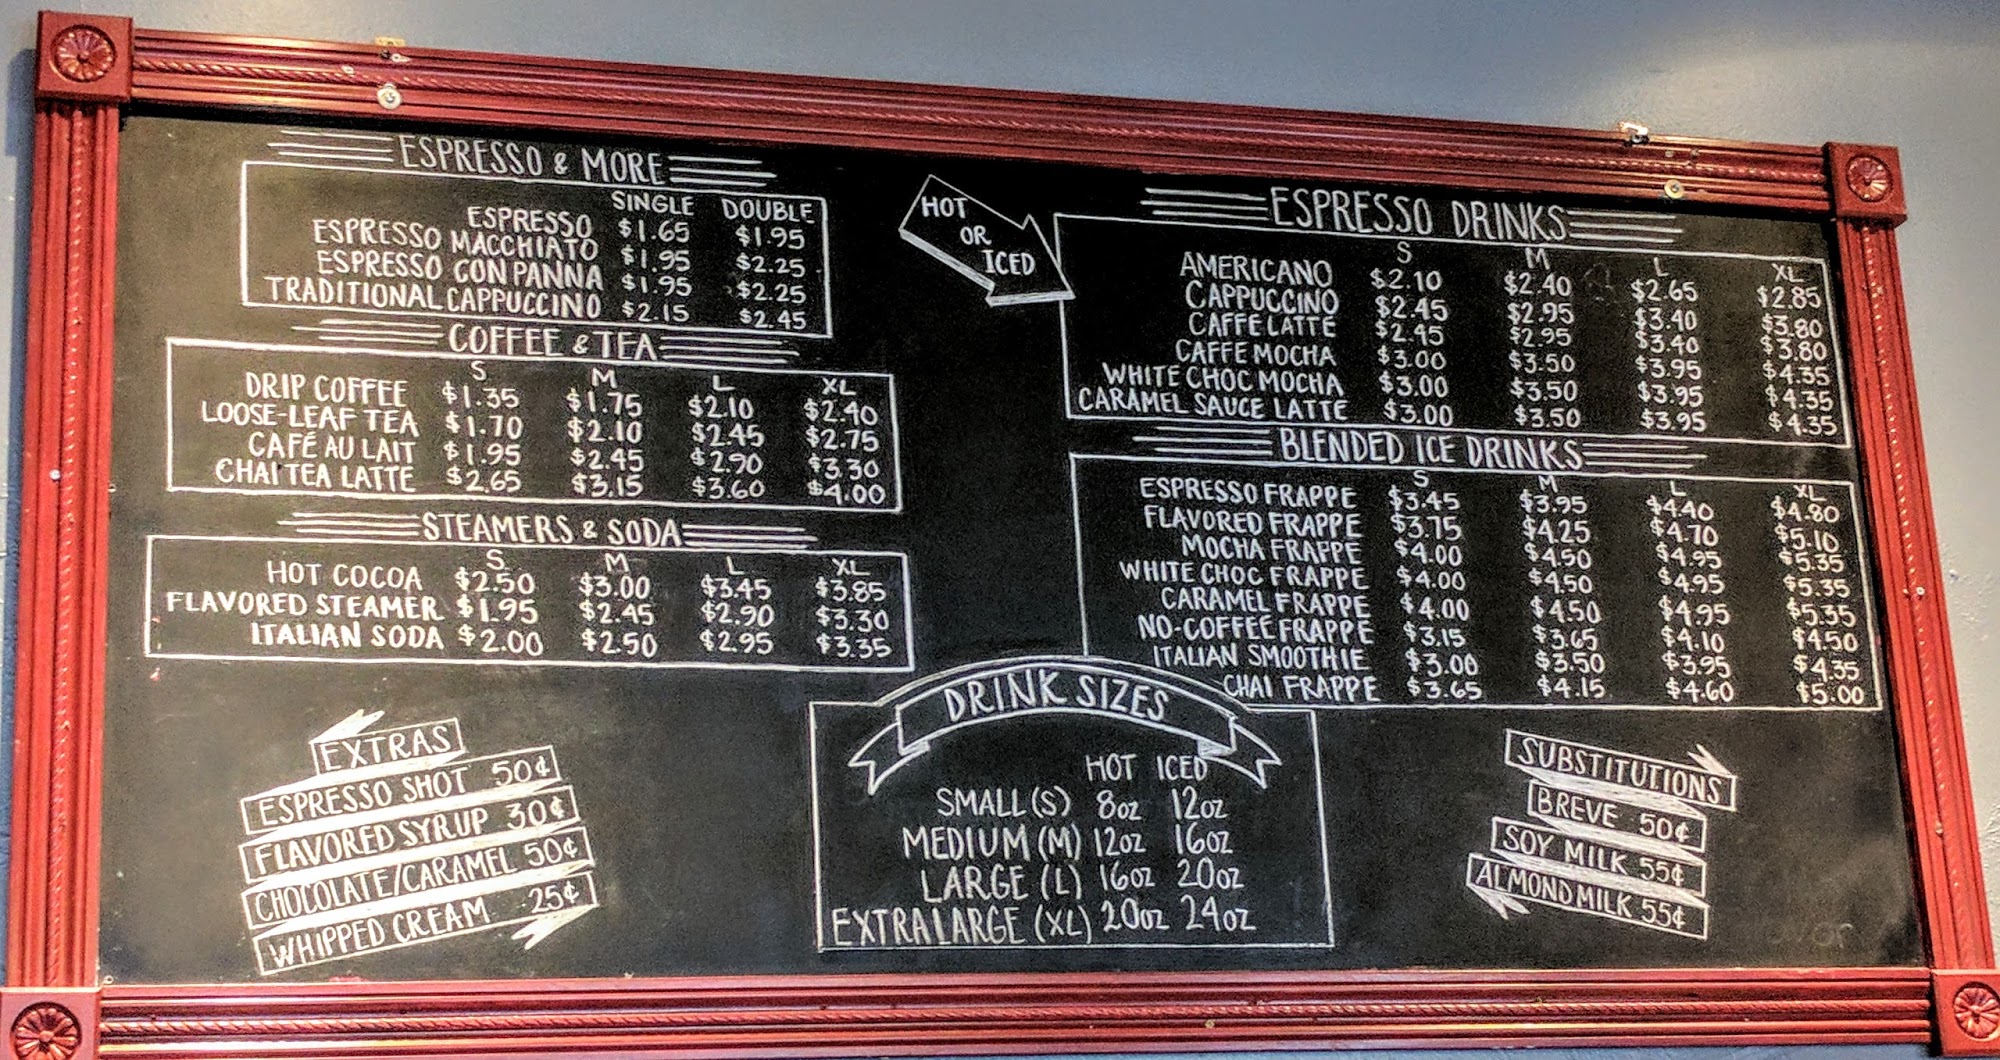 ESPRESSO & MORE
SINGLE DOUBLE
ESPRESSO $1.65 $1.95
ESPRESSO MACCHIATO $1.95 $2.25
ESPRESSO CON PANNA $1.95 $2.25
TRADITIONAL CAPPUCCINO $2.15 $2.45
COFFEE & TEA
S M L XL
DRIP COFFEE $1.35 $1.75 $2.10 $2.40
LOOSE-LEAF TEA $1.70 $2.10 $2.45 $2.75
CAFÉ AU LAIT $1.95 $2.45 $2.90 $3.30
CHAI TEA LATTE $2.65 $3.15 $3.60 $4.00
STEAMERS & SODA
S M L XL
HOT COCOA $2.50 $3.00 $3.45 $3.85
FLAVORED STEAMER $1.95 $2.45 $2.90 $3.30
ITALIAN SODA $2.00 $2.50 $2.95 $3.35
EXTRAS
ESPRESSO SHOT 50¢
FLAVORED SYRUP 30¢
CHOCOLATE/CARAMEL 50¢
WHIPPED CREAM 25¢
HOT
OR
ICED
ESPRESSO DRINKS
S M L XL
AMERICANO $2.10 $2.40 $2.65 $2.85
CAPPUCCINO $2.45 $2.95 $3.40 $3.80
CAFFE LATTE $2.45 $2.95 $3.40 $3.80
CAFFE MOCHA $3.00 $3.50 $3.95 $4.35
WHITE CHOC MOCHA $3.00 $3.50 $3.95 $4.35
CARAMEL SAUCE LATTE $3.00 $3.50 $3.95 $4.35
BLENDED ICE DRINKS
S M L XL
ESPRESSO FRAPPE $3.45 $3.95 $4.40 $4.80
FLAVORED FRAPPE $3.75 $4.25 $4.70 $5.10
MOCHA FRAPPE $4.00 $4.50 $4.95 $5.35
WHITE CHOC FRAPPE $4.00 $4.50 $4.95 $5.35
CARAMEL FRAPPE $4.00 $4.50 $4.95 $5.35
NO-COFFEE FRAPPE $3.15 $3.65 $4.10 $4.50
ITALIAN SMOOTHIE $3.00 $3.50 $3.95 $4.35
CHAI FRAPPE $3.65 $4.15 $4.60 $5.00
DRINK SIZES
HOT ICED
SMALL (S) 8oz 12oz
MEDIUM (M) 12oz 16oz
LARGE (L) 16oz 20oz
EXTRA LARGE (XL) 20oz 24oz
SUBSTITUTIONS
BREVE 50¢
SOY MILK 55¢
ALMOND MILK 55¢